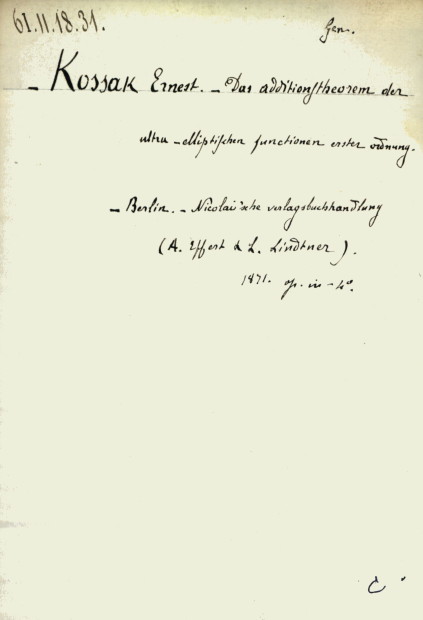 61.11.18.31.
Gen.
- Kossak Ernest. - Das additionstheorem der
ultra-elliptischen functionen erster ordnung.
- Berlin. - Nicolai'sche verlagsbuchhandlung
(A. Effert & L. Lindtner).
1871. op. in-4º.
C